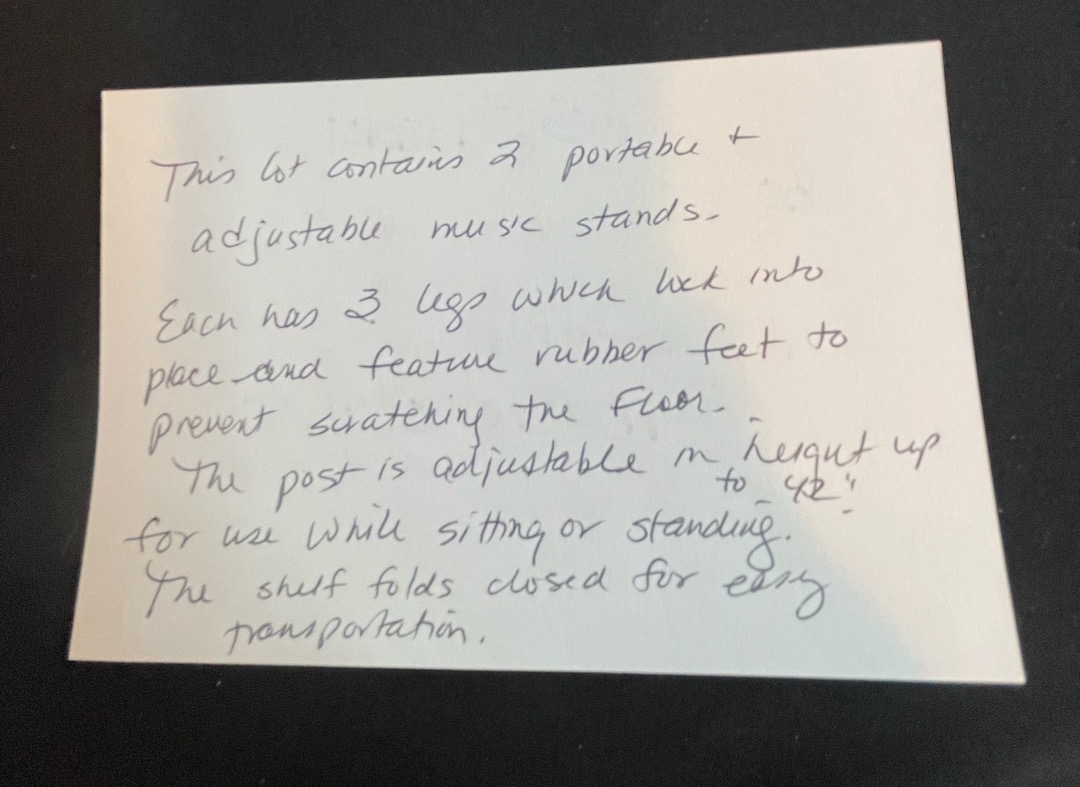 This lot contains 2 portable +
adjustable music stands.
Each has 3 legs which lock into
place and feature rubber feet to
prevent scratching the floor.
The post is adjustable in height up
to 42"
for use while sitting or standing.
The shelf folds closed for easy
transportation.